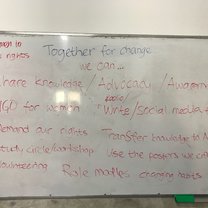 Together for change
rights
we can...
Share knowledge / Advocacy / Awaren
radio/
NGO for women Write/social media/
Demand our rights Transfer knowledge to
study circle/workshop Use the posters we
Volunteering Role models changing habits